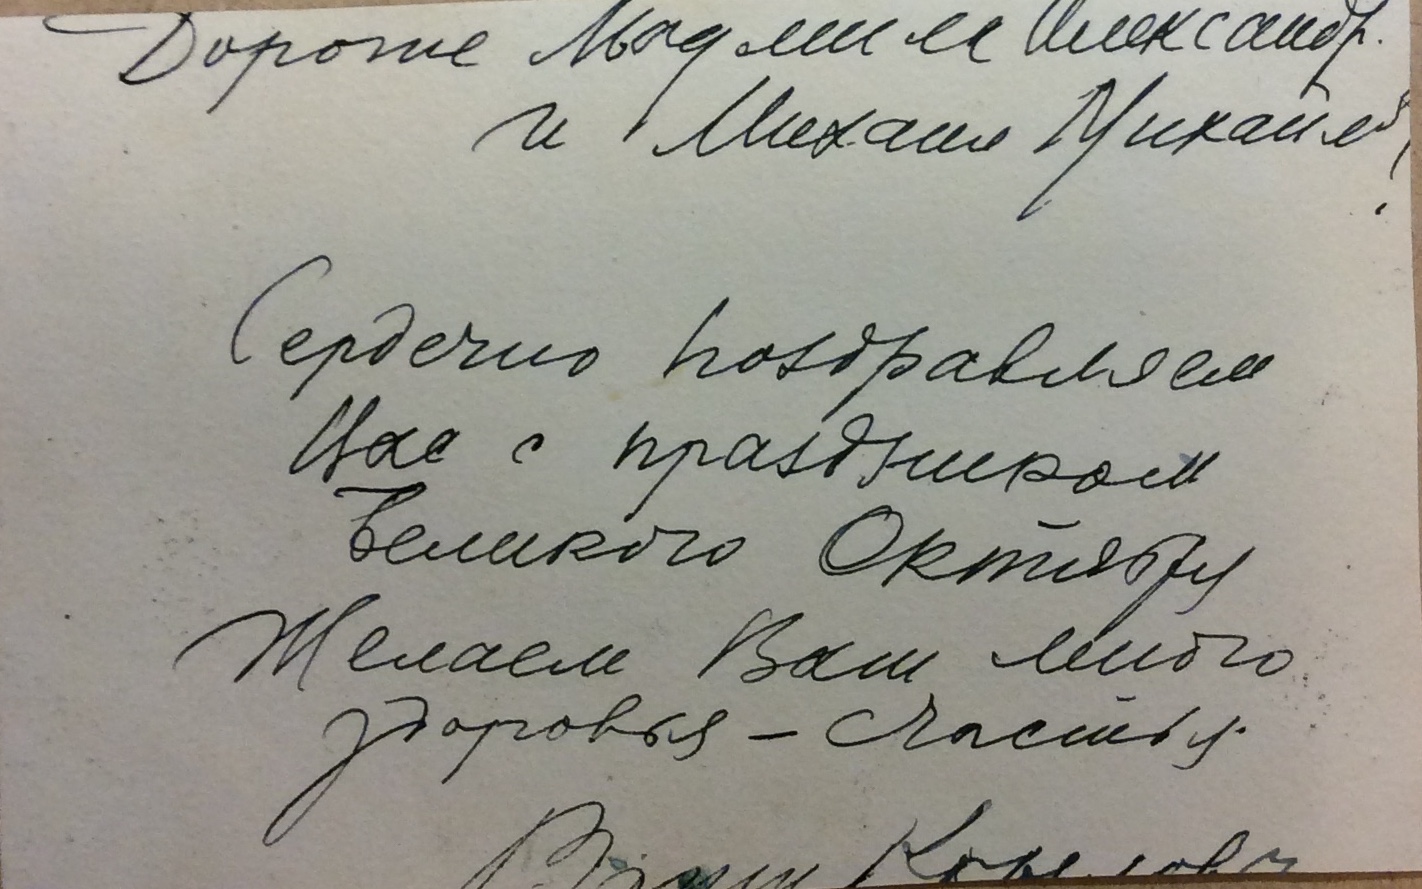 Дорогие Людмила Александр.
и Михаил Михайл!
Сердечно поздравляем
Вас с праздником
Великого Октября
Желаем Вам много
здоровья – счастья.
Ваши